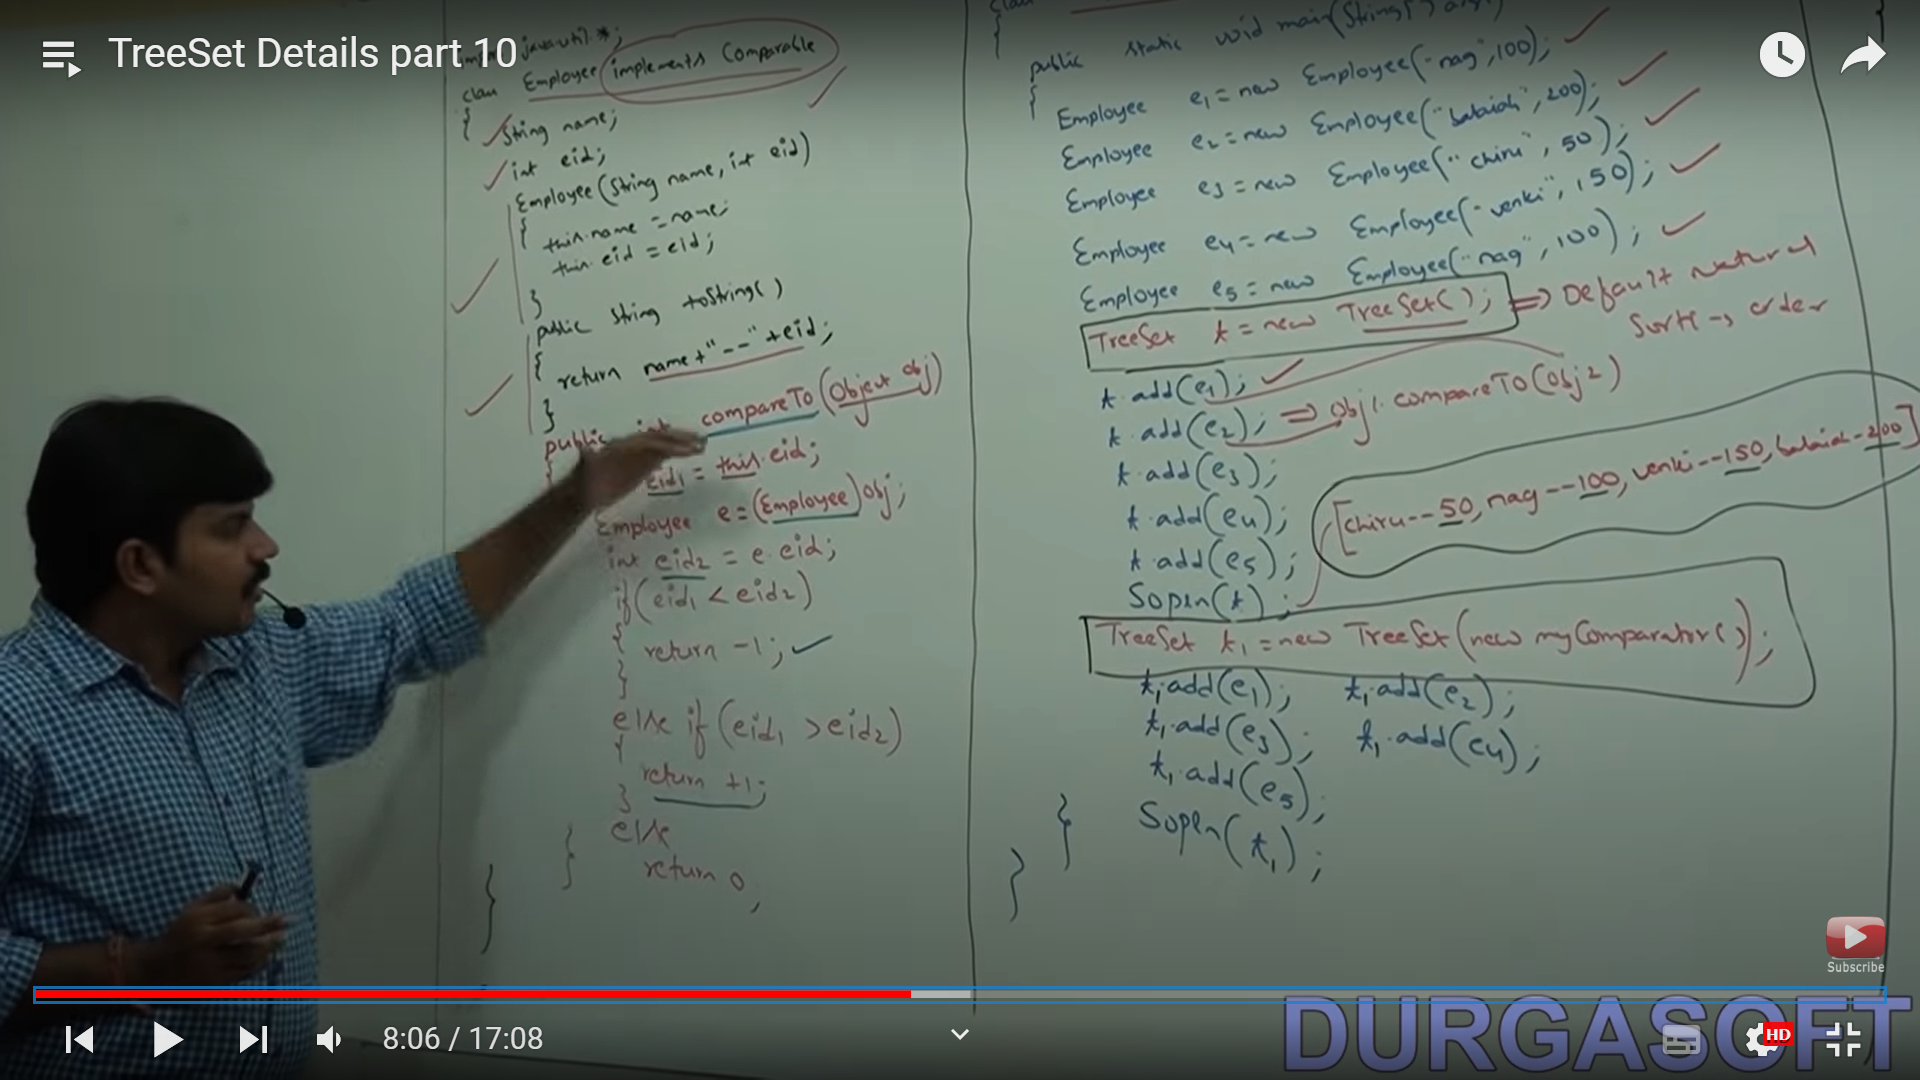 TreeSet Details part 10
java.util.*;
class Employee implements Comparable
{
String name;
int eid;
Employee(String name, int eid)
{
this.name = name;
this.eid = eid;
}
public String toString()
{
return name+"--"+eid;
}
public int compareTo(Object obj)
{
eid1 = this.eid;
Employee e=(Employee)obj;
int eid2 = e.eid;
if(eid1 < eid2)
{
return -1;
}
else if(eid1 > eid2)
{
return +1;
}
else
return 0;
}
}
{
public static void main(String[] args)
{
Employee e1 = new Employee("nag",100);
Employee e2 = new Employee("balaiah",200);
Employee e3 = new Employee("chiru",50);
Employee e4 = new Employee("venki",150);
Employee e5 = new Employee("nag",100);
TreeSet t = new TreeSet(); => Default natural
Sorti→ order
t.add(e1);
t.add(e2); => obj1.compareTo(obj2)
t.add(e3);
t.add(e4);
t.add(e5);
[chiru--50, nag--100, venki--150, balaiah-200]
Sopln(t);
TreeSet t1 = new TreeSet(new myComparator());
t1.add(e1); t1.add(e2);
t1.add(e3); t1.add(e4);
t1.add(e5);
Sopln(t1);
}
}
Subscribe
8:06 / 17:08
HD
DURGASOFT